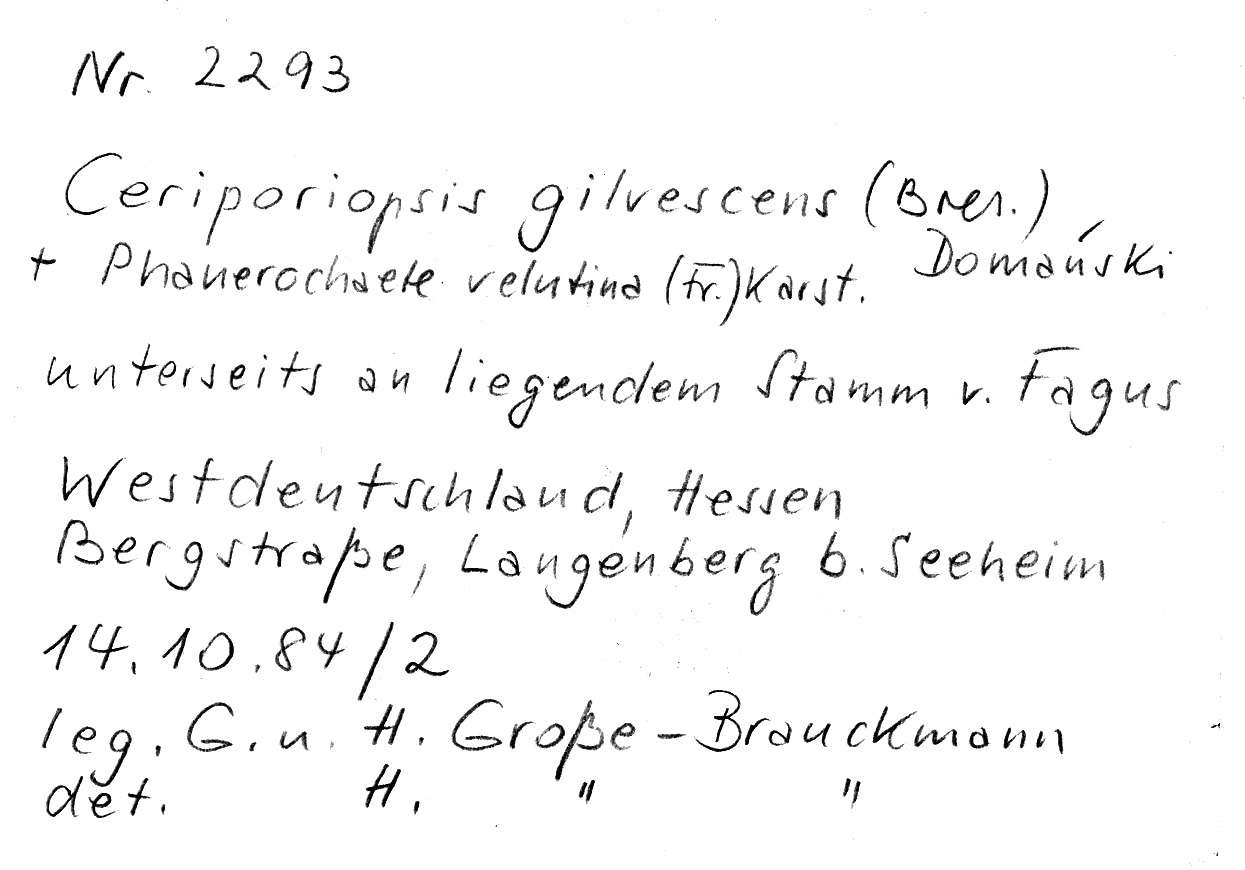 Nr. 2293
Ceriporiopsis gilvescens (Bres.)
Domański
+ Phanerochaete velutina (Fr.) Karst.
unterseits an liegendem Stamm v. Fagus
Westdeutschland, Hessen
Bergstraße, Langenberg b. Seeheim
14.10.84/2
leg. G. u. H. Große-Brauckmann
det. H. " "